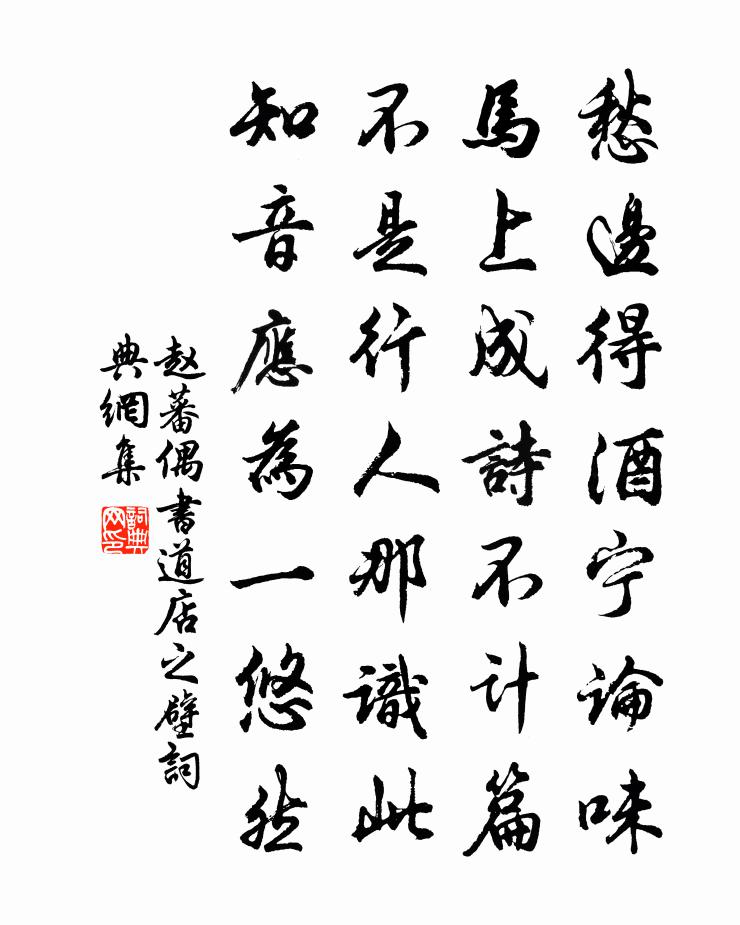 愁邊得酒宁論味
馬上成詩不計篇
不是行人那識此
知音應為一悠然
赵蕃偶書道店之壁詞
典網集
詞典网印